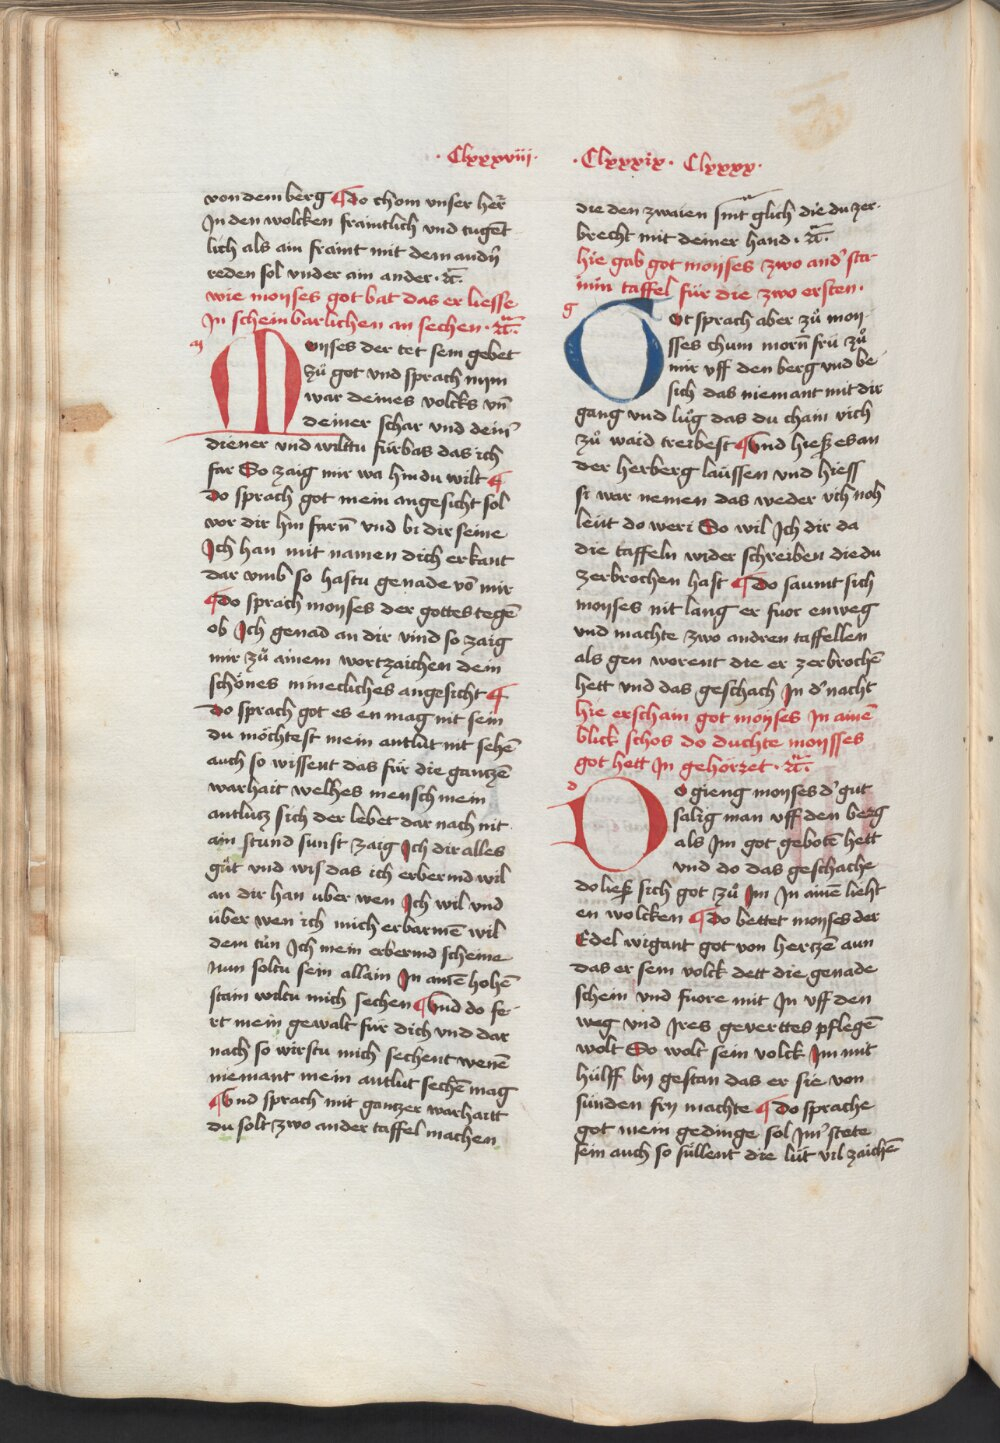 · Clxxxviii · · Clxxxix · Clxxxx ·
von dem berg ¶ Do chom unser her̄
In den wolcken fraintlich und tugēt
lich als ain fraint mit dem andn̄
reden sol vnder ain ander · rc̄
wie moyses got bat das er liesse
In scheinbarlichen an sechen · rc̄
m
Moyses der tet sein gebet
zů got vnd sprach nym
war deines volcks vn̄
deiner schar vnd dein
diener vnd wilttu fürbas das ich
far So zaig mir wa hin du wilt ¶
Do sprach got mein angesicht sol
vor dir hin farn̄ vnd bi dir seine
Ich han mit namen dich erkant
dar vmb so hastu genade vō mir
¶ Do sprach moyses der gottes tegē
ob Ich genad an dir vind so zaig
mir zů ainem wortzaichen dein
schönes minecliches angesicht ¶
Do sprach got es en mag nit sein
du möchtest mein antlut nit sehē
auch so wissent das für die gantzē
warhait welhes mensch mein
antlutz sich der lebet dar nach nit
ain stund sunst zaig Ich dir alles
gůt vnd wis das ich erbermd wil
an dir han uber wen Ich wil vnd
über wen ich mich erbarmē wil
dem tůn Ich mein erbermd scheine
Nun soltu sein allain In ainē hohē
stain wiltu mich sechen ¶ Vnd do fe-
rt mein gewalt für dich vnd dar
nach so wirstu mich sechent wenē
niemant mein antlut sechē mag
¶ Vnd sprach mit gantzer warhaitt
du solt zwo ander taffel machen
die den zwaien sint glich die du zer-
brecht mit deiner hand · rc̄
hie gab got moyses zwo and' stai-
nin taffel für die zwo ersten ·
g
Got sprach aber zů moy-
sses chum morn̄ frü zů
mir vff den berg vnd be
sich das niemant mit dir
gang vnd lůg das du chain vich
zů waid treibest ¶ Vnd hiesz es an
der herberg laüssen vnd hiess
si war nemen das weder vich noh
leüt do weri So wil Ich dir da
die taffeln wider schreiben die du
zerbrochen hast ¶ Do saumt sich
moyses nit lang er fuor enweg
vnd machte zwo andren taffellen
als gen worent die er zerbrochē
hett vnd das geschach In d' nacht
hie erschain got moyses In ainē
blick schos do duchte moysses
got hett In gehörret · rc̄
d
Do gieng moyses d' gut
sälig man vff den berg
als Im got gebotē hett
vnd do das geschache
do liesz sich got zů Im In ainē lieht
en wolcken ¶ Do bettet moyses der
Edel wigant got von hertzē aun
das er sein volck dett die genade
schein vnd fuore mit In vff den
weg vnd Ires geverttes pflegē
wolt So wolt sein volck Im mit
hülff by gestan das er sie von
sünden fry machte ¶ Do sprache
got mein gedinge sol Im' stete
sein auch so süllent die lüt vil zaichē